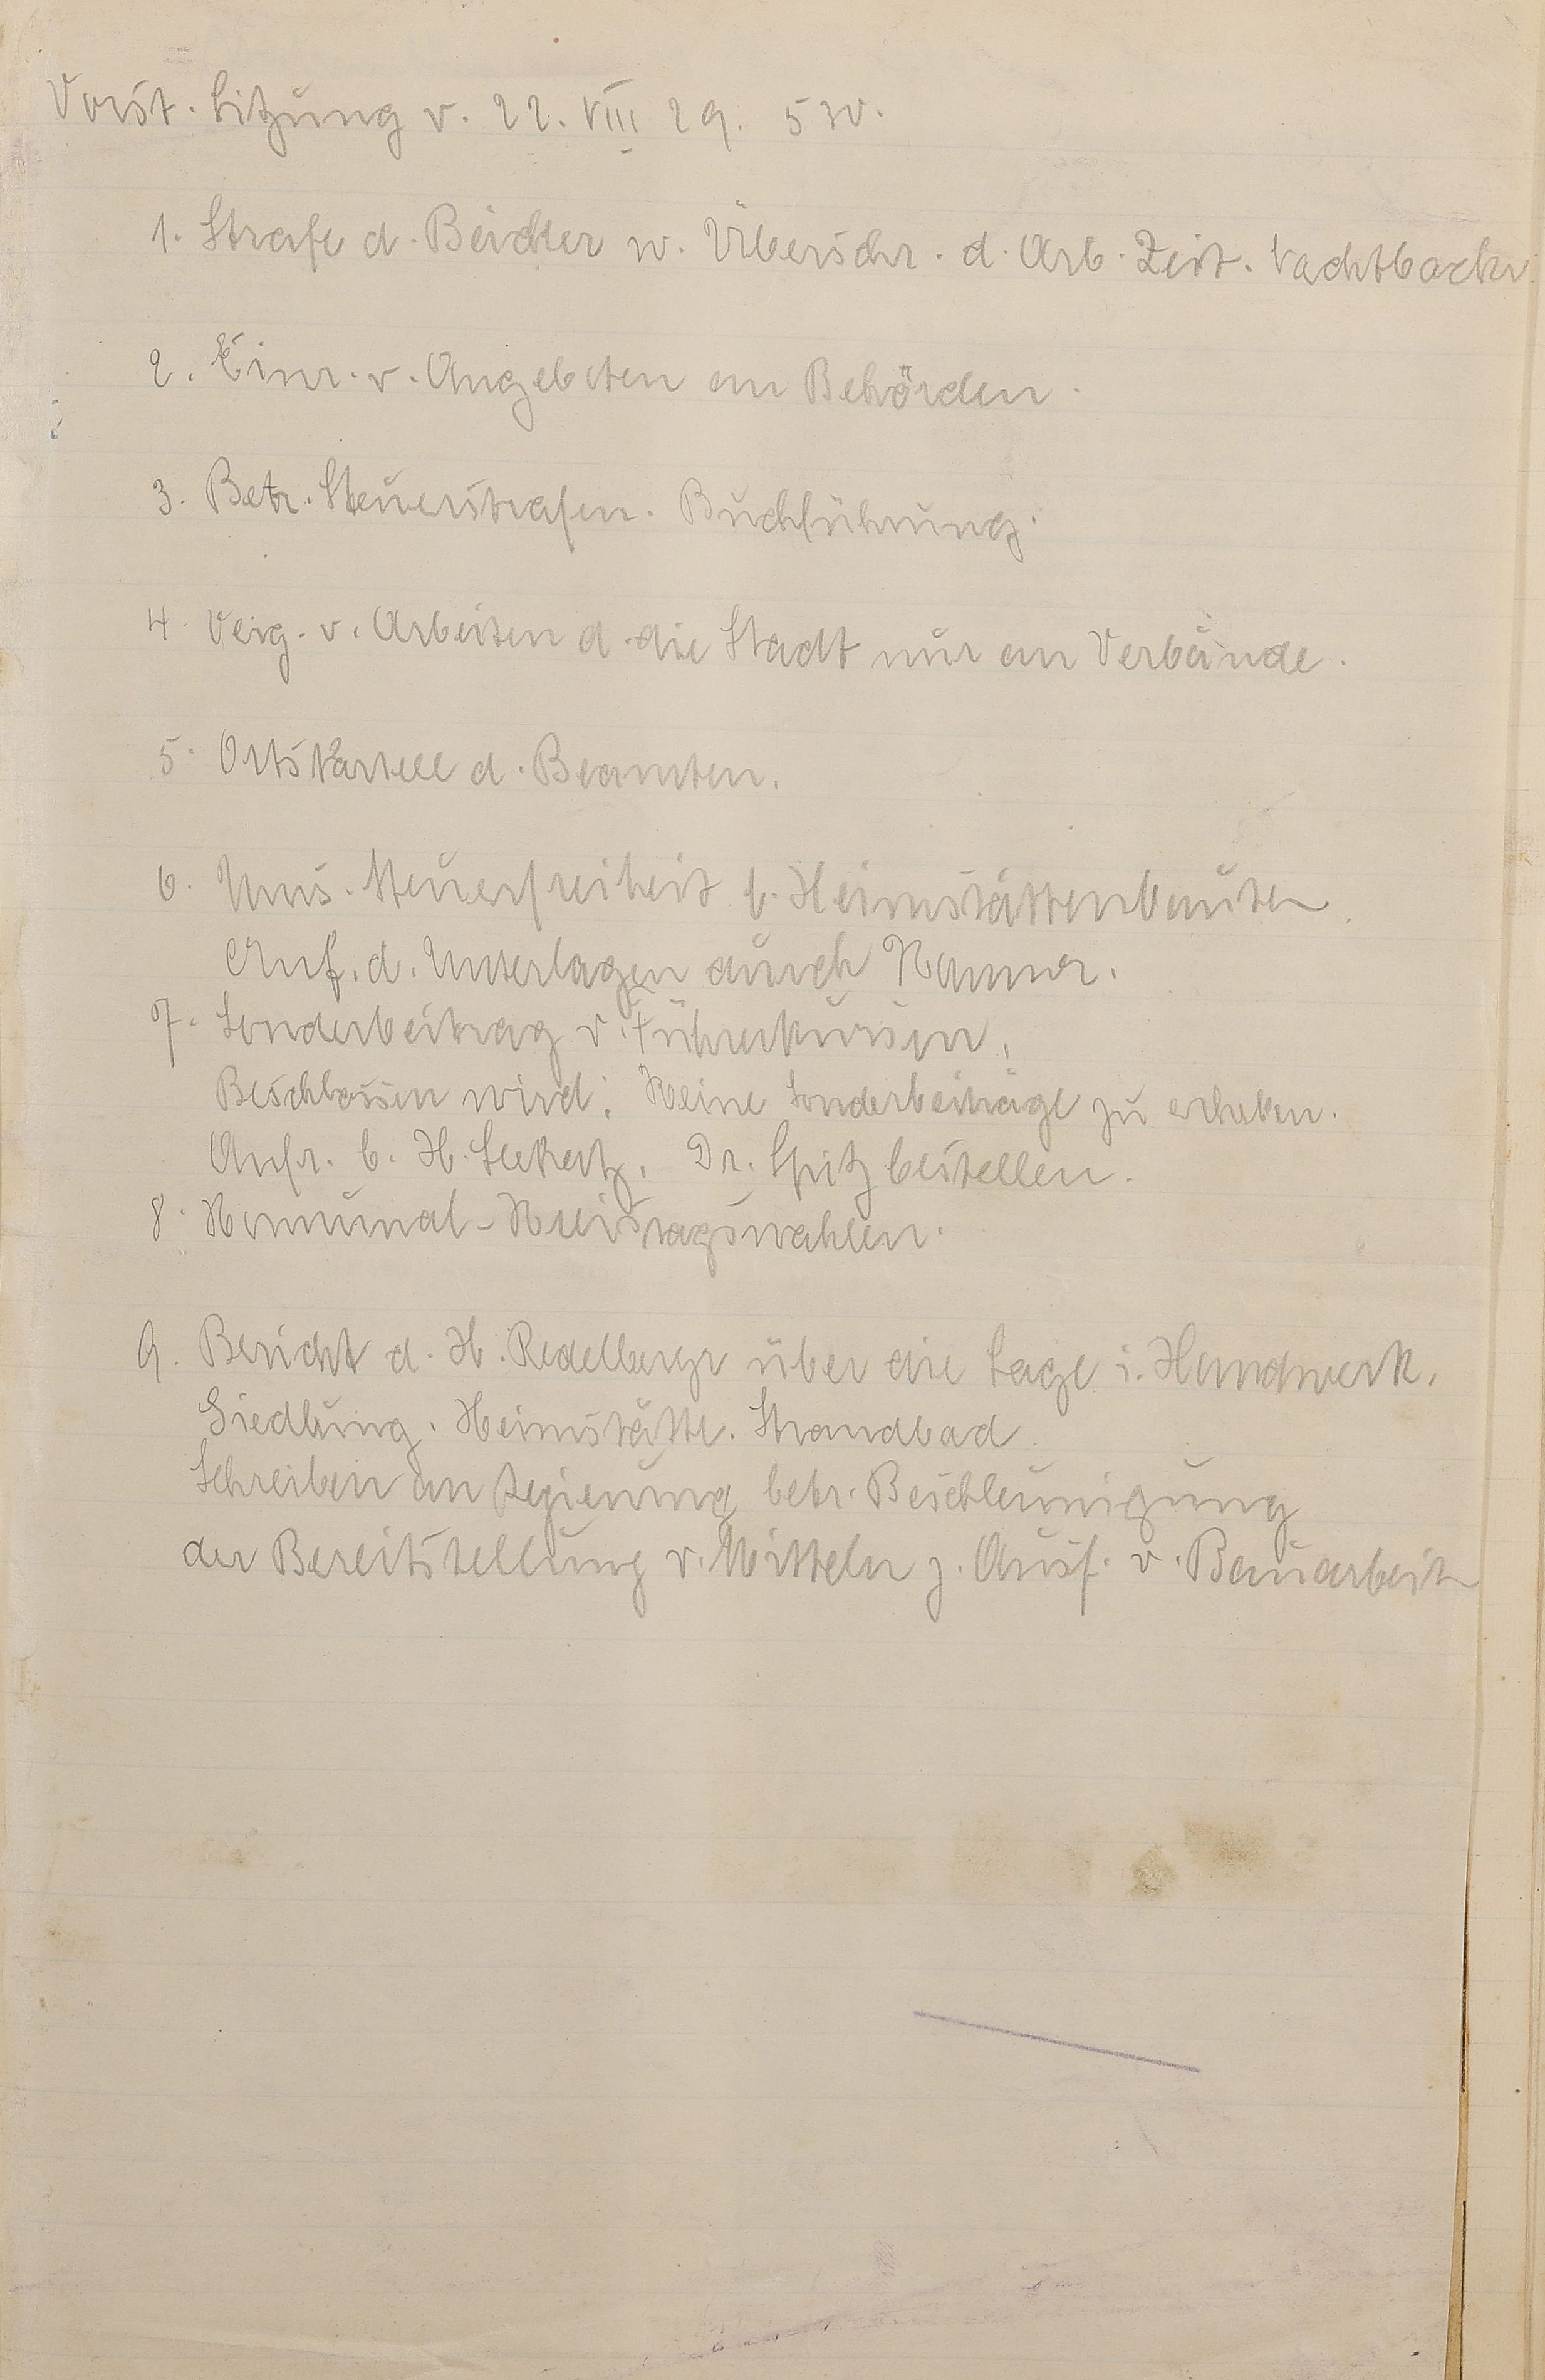 Vorst. Sitzung v. 22. VIII 29. 5 Uhr.
1. Strafe d. Bäcker w. Überschr. d. Arb. Zeit. Nachtbacken
2. Einr. v. Angeboten an Behörden.
3. Betr. Steuerstrafen. Buchführung.
4. Verg. v. Arbeiten d. die Stadt nur an Verbände.
5. Ortskartell d. Beamten.
6. Ums. Steuerfreiheit b. Heimstättenbauten
Anf. d. Unterlagen durch Kammer.
7. Sonderbeitrag v. Führerkursen.
Beschlossen wird: Keine Sonderbeiträge zu erheben.
Anfr. b. H. Dr. Spitz bestellen.
8. Komunal-Kreistagswahlen.
9. Bericht d. H. Redelberger über die Lage i. Handwerk.
Siedlung. Heimstätte. Strandbad
Schreiben an Regierung betr. Beschleunigung
der Bereitstellung v. Mitteln z. Ausf. v. Bauarbeiten